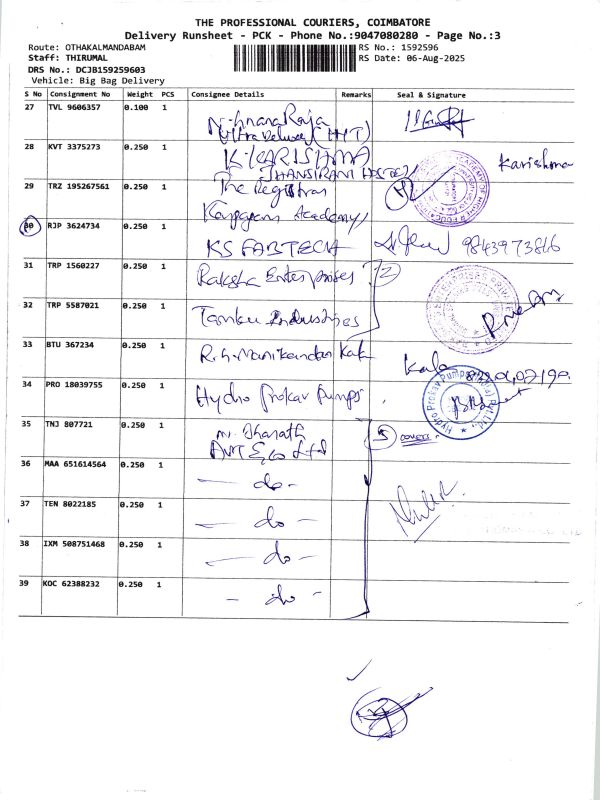 THE PROFESSIONAL COURIERS, COIMBATORE
Delivery Runsheet - PCK - Phone No.:9047080280 - Page No.:3
Route: OTHAKALMANDABAM RS No.: 1592596
Staff: THIRUMAL RS Date: 06-Aug-2025
DRS No.: DCJB159259603
Vehicle: Big Bag Delivery
S No Consignment No Weight PCS Consignee Details Remarks Seal & Signature
27 TVL 9606357 0.100 1
28 KVT 3375273 0.250 1 K. KARISHMA Karishma
JHANSIRANI HOSTEL
29 TRZ 195267561 0.250 1 The Registrar
Karpagam Academy
30 RJP 3624734 0.250 1 KS FABTECH 9843973816
31 TRP 1560227 0.250 1 Raksha Enterprises 2
32 TRP 5587021 0.250 1 Industries
33 BTU 367234 0.250 1 R.S. Manikandan Kala
34 PRO 18039755 0.250 1 Hydro Prokav Pumps
Hydro Prokav Pumps (India) Pvt. Ltd.
35 TNJ 807721 0.250 1 Mr. Bharath 5 covers
36 MAA 651614564 0.250 1 - do -
37 TEN 8022185 0.250 1 - do -
38 IXM 508751468 0.250 1 - do -
39 KOC 62388232 0.250 1 - do -